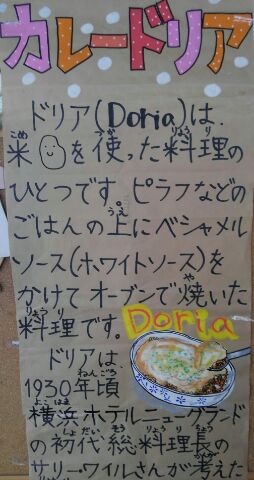 カレードリア
ドリア(Doria)は、
米を使った料理の
ひとつです。ピラフなどの
ごはんの上にベシャメル
ソース(ホワイトソース)を
かけてオーブンで焼いた
料理です。
Doria
ドリアは
1930年頃
横浜ホテルニューグランド
の初代総料理長の
サリー・ワイルさんが考えた